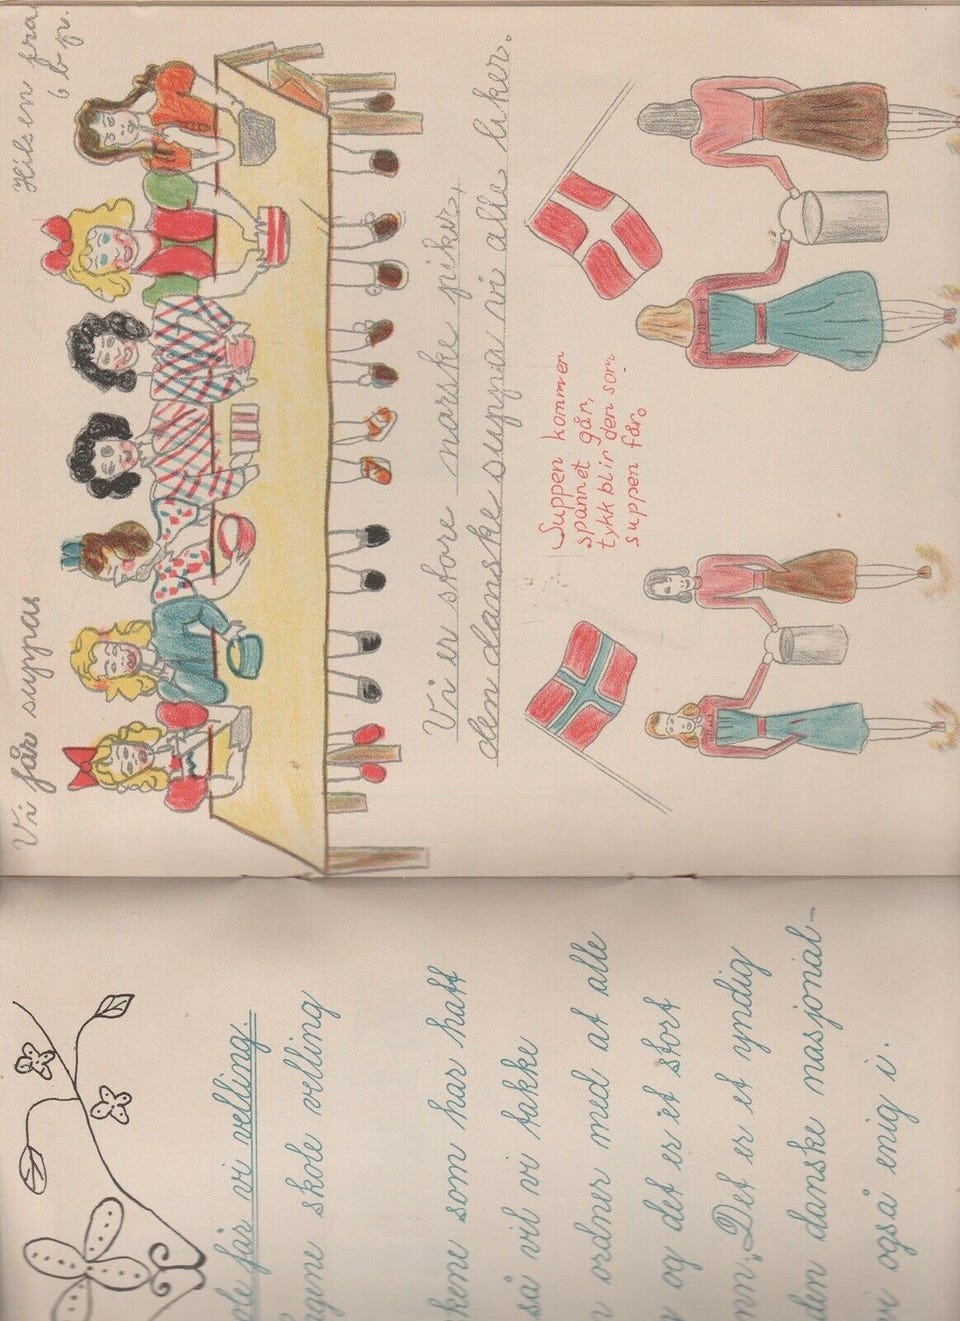 Vi får suppa
Hilsen fra
6 b p.
Vi er store norske piker,
den danske suppa vi alle liker.
Suppen kommer
spannet går,
tykk blir den som
suppen får.
ole får vi velling.
agene skole velling
kene som har hatt
så vil vi takke
n ordner med at alle
og det er et stort
nn. „Det er et yndig
den danske nasjonal-
vi også enig i.